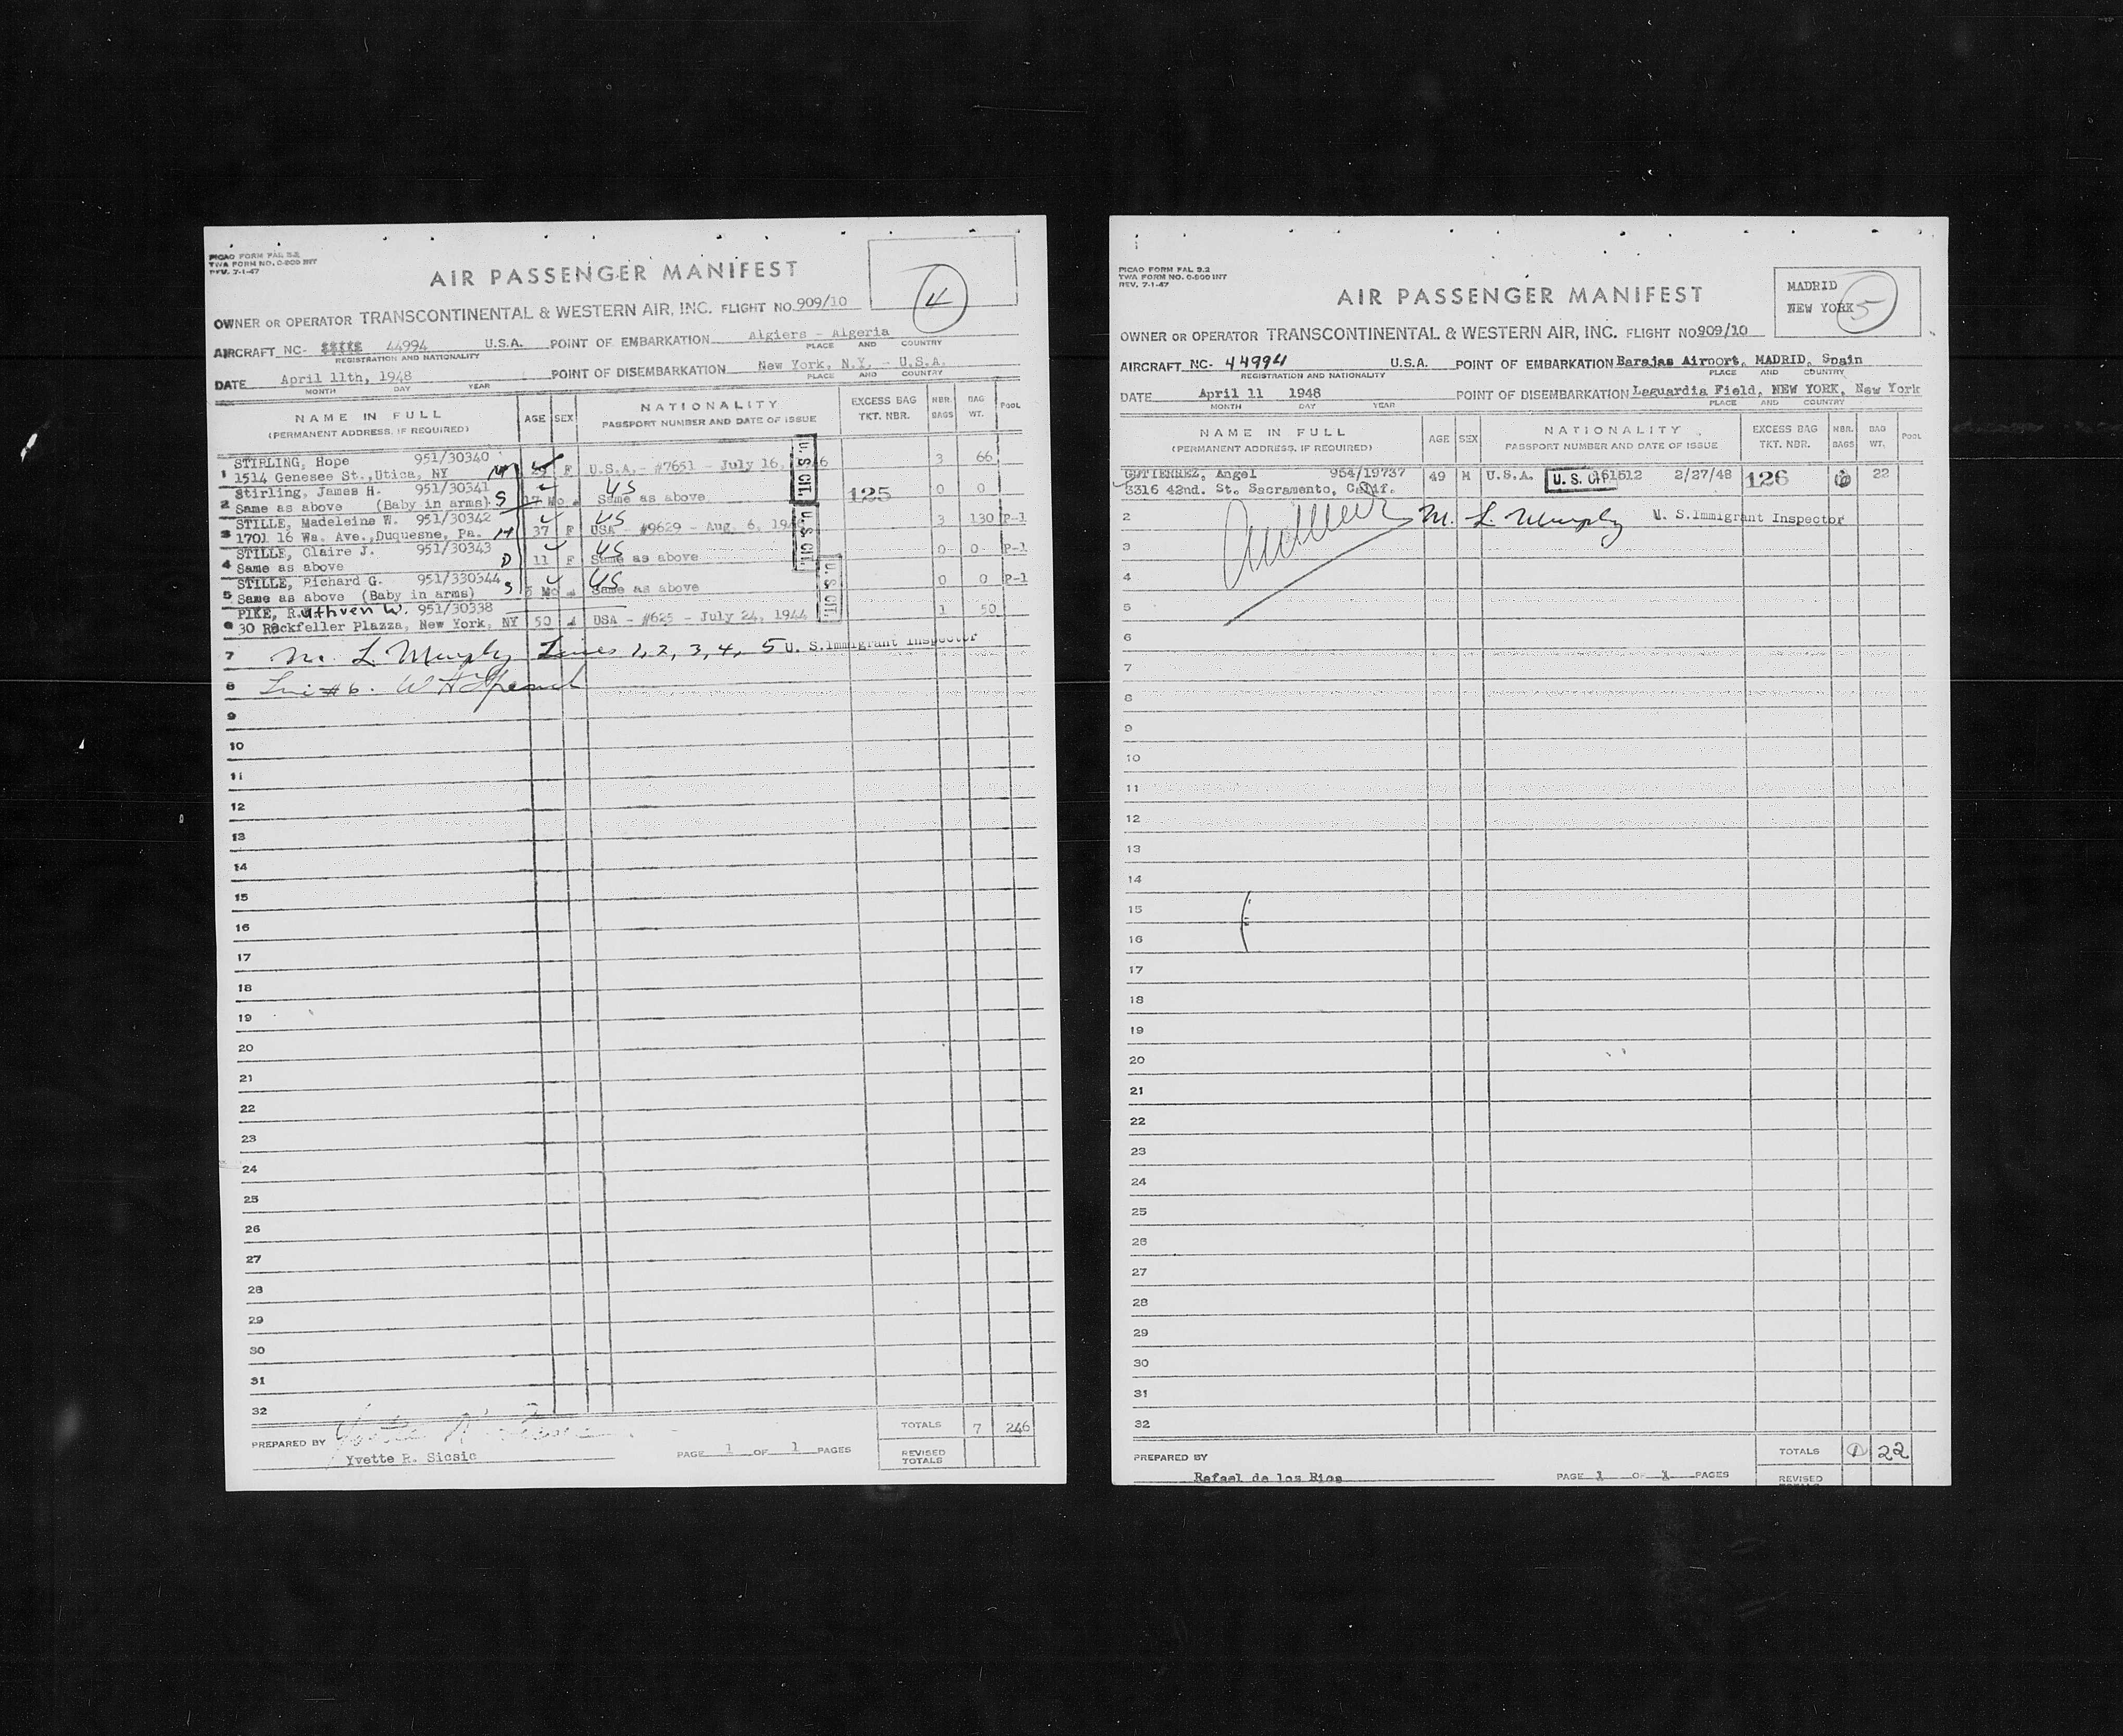 PICAO FORM FAL 3.2
TWA FORM NO. O-800 INT
REV. 7-1-47
AIR PASSENGER MANIFEST
4
OWNER OR OPERATOR TRANSCONTINENTAL & WESTERN AIR, INC. FLIGHT NO. 909/10
AIRCRAFT NC- 44994 U.S.A. POINT OF EMBARKATION Algiers - Algeria
REGISTRATION AND NATIONALITY PLACE AND COUNTRY
DATE April 11th, 1948 POINT OF DISEMBARKATION New York, N.Y. - U.S.A.
MONTH DAY YEAR PLACE AND COUNTRY
NAME IN FULL AGE SEX NATIONALITY EXCESS BAG NBR. BAG POOL
(PERMANENT ADDRESS, IF REQUIRED) PASSPORT NUMBER AND DATE OF ISSUE TKT. NBR. BAGS WT.
STIRLING, Hope 951/30340
1 1514 Genesee St.,Utica, NY M F U.S.A. - #7651 - July 16, 3 66
U. S. CIT.
Stirling, James H. 951/30341 US
2 Same as above (Baby in arms) S 17 Mo Same as above 125 0 0
STILLE, Madeleine W. 951/30342 US
3 1701 16 Wa. Ave.,Duquesne, Pa. M 37 F USA - #9629 - Aug. 6, 3 130 P-1
U. S. CIT.
STILLE, Claire J. 951/30343 US
4 Same as above D 11 F Same as above 0 0 P-1
STILLE, Richard G. 951/330344 US
5 Same as above (Baby in arms) S 5 Mo Same as above 0 0 P-1
U. S. CIT.
PIKE, Ruthven W. 951/30338
6 30 Rockfeller Plazza, New York, NY 50 USA - #625 - July 24, 1944 1 50
7 M. L. Murphy Lines 1, 2, 3, 4, 5 U. S. Immigrant Inspector
8 Line #6.
9
10
11
12
13
14
15
16
17
18
19
20
21
22
23
24
25
26
27
28
29
30
31
32
TOTALS 7 246
PREPARED BY
Yvette R. Sicsic PAGE 1 OF 1 PAGES
REVISED
TOTALS
PICAO FORM FAL 3.2
TWA FORM NO. O-800 INT
REV. 7-1-47
AIR PASSENGER MANIFEST
MADRID
NEW YORK 5
OWNER OR OPERATOR TRANSCONTINENTAL & WESTERN AIR, INC. FLIGHT NO 909/10
AIRCRAFT NC- 44994 U.S.A. POINT OF EMBARKATION Barajas Airport, MADRID, Spain
REGISTRATION AND NATIONALITY PLACE AND COUNTRY
DATE April 11 1948 POINT OF DISEMBARKATION Laguardia Field, NEW YORK, New York
MONTH DAY YEAR PLACE AND COUNTRY
NAME IN FULL AGE SEX NATIONALITY EXCESS BAG NBR. BAG POOL
(PERMANENT ADDRESS, IF REQUIRED) PASSPORT NUMBER AND DATE OF ISSUE TKT. NBR. BAGS WT.
GUTIERREZ, Angel 954/19737 49 M U.S.A. U. S. CIT 161612 2/27/48 126 22
3316 42nd. St. Sacramento, Calif.
2 M. L. Murphy U. S. Immigrant Inspector
3
4
5
6
7
8
9
10
11
12
13
14
15
16
17
18
19
20
21
22
23
24
25
26
27
28
29
30
31
32
PREPARED BY TOTALS 1 22
Rafael de los Rios PAGE 1 OF 1 PAGES REVISED